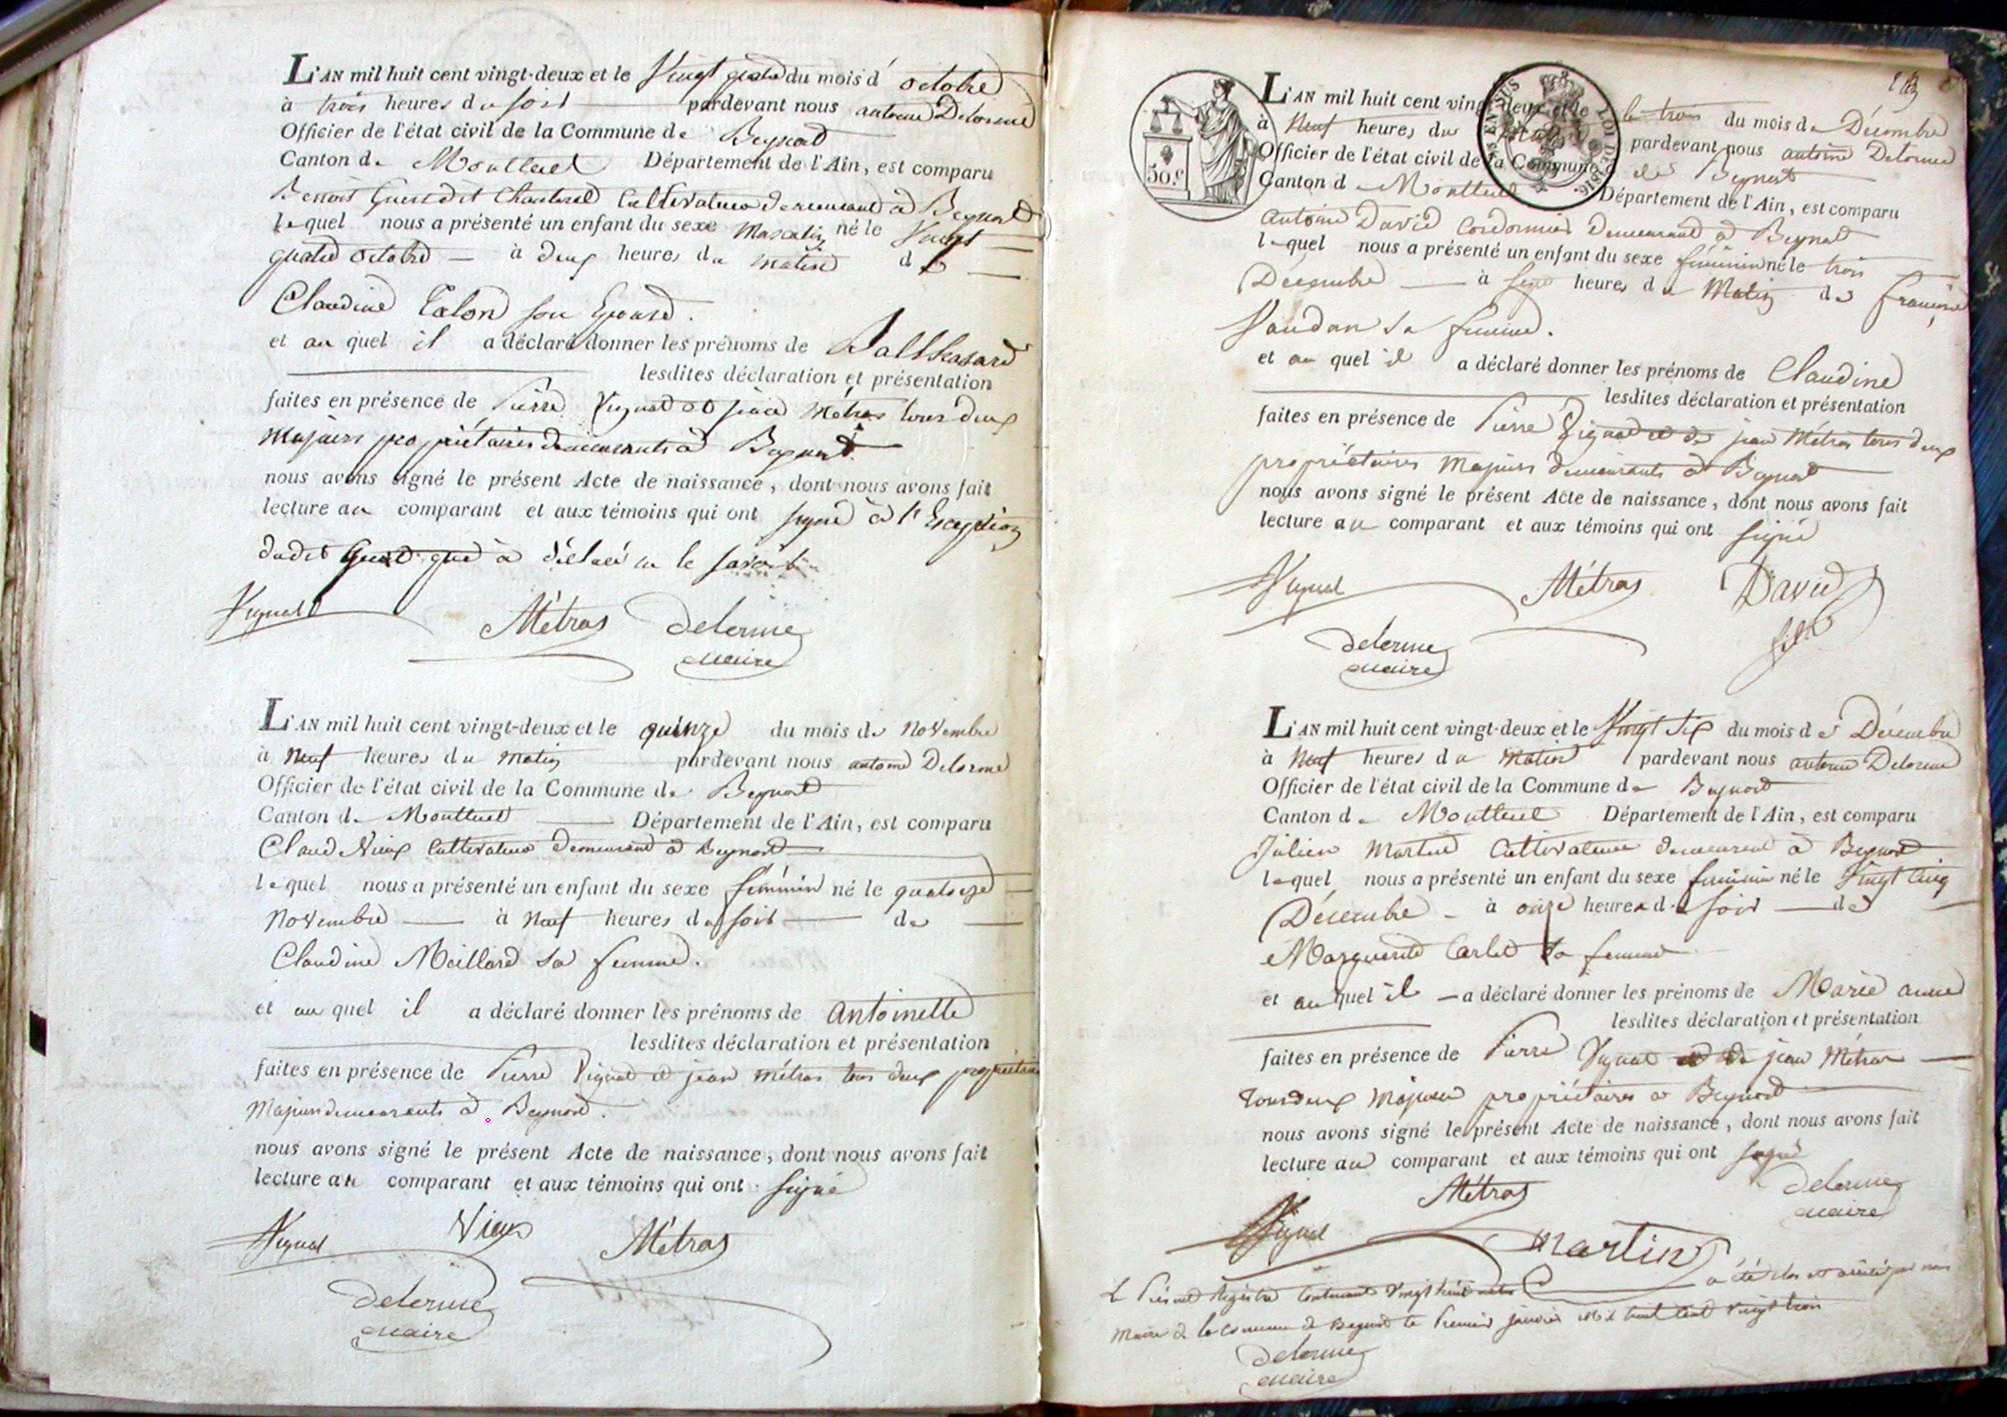 L'AN mil huit cent vingt-deux et le Vingt quatre du mois d' octobre
à trois heures du soir pardevant nous antoine Delorme
Officier de l'état civil de la Commune de Beynost
Canton de Montluel Département de l'Ain, est comparu
Benoit Guerdet Cultivateur demeurant à Beynost
lequel nous a présenté un enfant du sexe Masculin né le Vingt
quatre octobre à deux heures du matin de
Claudine Talon son Epouse.
et auquel il a déclaré donner les prénoms de Balthasard
lesdites déclaration et présentation
faites en présence de Pierre Vignat et jean Métras tous deux
Majeurs propriétaires demeurants à Beynost
nous avons signé le présent Acte de naissance, dont nous avons fait
lecture au comparant et aux témoins qui ont signé à l'Exception
dudit qui a déclaré ne le savoir
Vignat
Métras delorme
maire
L'AN mil huit cent vingt-deux et le quinze du mois de Novembre
à Neuf heures du matin pardevant nous antoine Delorme
Officier de l'état civil de la Commune de Beynost
Canton de Montluel Département de l'Ain, est comparu
Claude Vieux Cultivateur demeurant à Beynost
lequel nous a présenté un enfant du sexe féminin né le quatorze
Novembre à Neuf heures du soir de
Claudine Meillard sa femme.
et auquel il a déclaré donner les prénoms de Antoinette
lesdites déclaration et présentation
faites en présence de Pierre Vignat et jean Métras tous deux propriétaires
Majeurs demeurants à Beynost.
nous avons signé le présent Acte de naissance, dont nous avons fait
lecture au comparant et aux témoins qui ont signé
Vignat Vieux Métras
delorme
maire
50.c
LOI DE 1816.
L'AN mil huit cent vingt-deux et le trois du mois de Décembre
à Neuf heures du pardevant nous antoine Delorme
Officier de l'état civil de la Commune de Beynost
Canton d Montluel Département de l'Ain, est comparu
Antoine David Cordonnier demeurant à Beynost
lequel nous a présenté un enfant du sexe féminin né le trois
Décembre à heures du Matin de Françoise
Vaudan sa femme.
et auquel il a déclaré donner les prénoms de Claudine
lesdites déclaration et présentation
faites en présence de Pierre Vignat et de jean Métras tous deux
propriétaires Majeurs demeurants à Beynost
nous avons signé le présent Acte de naissance, dont nous avons fait
lecture au comparant et aux témoins qui ont signé
Vignat Métras David
fils
delorme
maire
L'AN mil huit cent vingt-deux et le Vingt six du mois de Décembre
à Neuf heures du matin pardevant nous antoine Delorme
Officier de l'état civil de la Commune de Beynost
Canton de Montluel Département de l'Ain, est comparu
Julien Martin Cultivateur demeurant à Beynost
lequel nous a présenté un enfant du sexe féminin né le Vingt Cinq
Décembre à onze heures du soir de
Marguerite Carlet sa femme
et auquel il a déclaré donner les prénoms de Marie anne
lesdites déclaration et présentation
faites en présence de Pierre Vignat et de jean Métras
Tous deux Majeurs propriétaires à Beynost
nous avons signé le présent Acte de naissance, dont nous avons fait
lecture au comparant et aux témoins qui ont signé
Vignat Métras delorme
maire
martin
Le Présent Régistre Contenant Vingt huit actes a été clos et arrêté par nous
Maire de la Commune de Beynost le Premier janvier mil huit Cent Vingt trois
delorme
maire